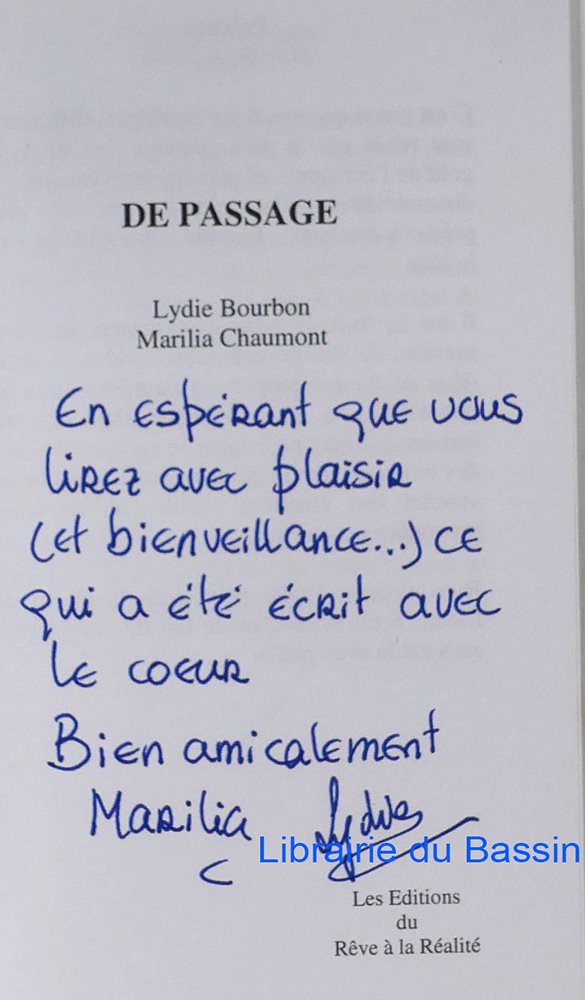 DE PASSAGE
Lydie Bourbon
Marilia Chaumont
En espérant que vous
lirez avec plaisir
(et bienveillance...) ce
qui a été écrit avec
le coeur
Bien amicalement
Marilia Lydie
Librairie du Bassin
Les Editions
du
Rêve à la Réalité